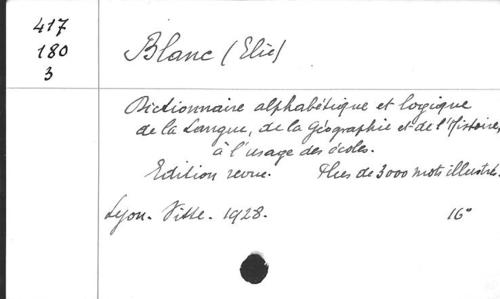 417
180
3
Blanc (Elie)
Dictionnaire alphabétique et logique
de la Langue, de la Géographie et de l'Histoire,
à l'usage des écoles.
Edition revue. Plus de 3000 mots illustrés.
Lyon. Vitte. 1928. 16°